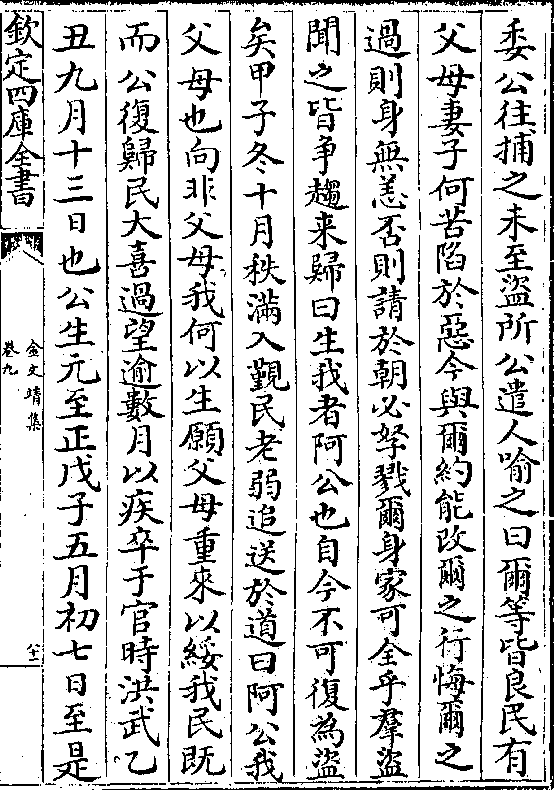 委公往捕之未至盜所公遣人喻之曰爾等皆良民有
父母妻子何苦陷於惡今與爾約能改爾之行悔爾之
過則身無恙否則請於朝必孥戮爾身家可全乎羣盜
聞之皆争趨来歸曰生我者阿公也自今不可復為盜
矣甲子冬十月秩滿入覲民老弱追送於道曰阿公我
父母也向非父母我何以生願父母重來以綏我民既
而公復歸民大喜過望逾數月以疾卒于官時洪武乙
丑九月十三日也公生元至正戊子五月初七日至是
欽定四庫全書
金文靖集
卷九